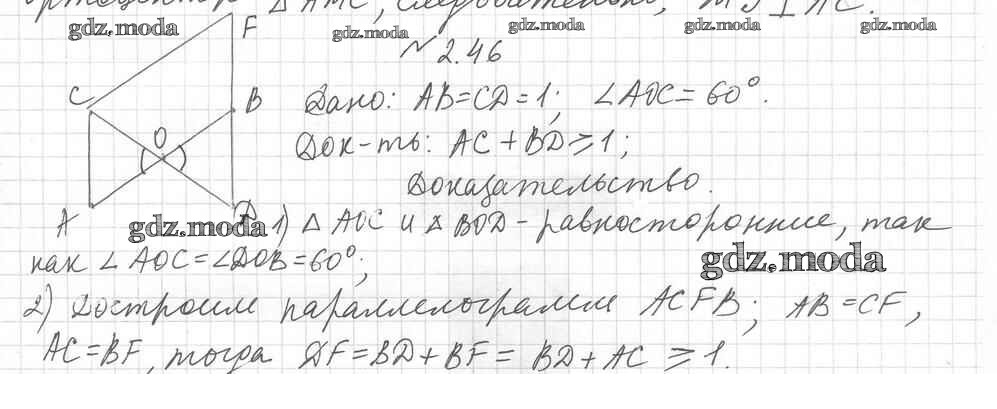 ортоцентр △ AMC, следовательно, MJ ⊥ AC.
gdz.moda gdz.moda gdz.moda gdz.moda gdz.moda
F
№ 2.46
C B Дано: AB=CD=1; ∠AOC=60°.
O Док-ть: AC+BD⩾1;
Доказательство.
A D gdz.moda 1) △ AOC и △ BOD - равносторонние, так
как ∠AOC=∠DOB=60°; gdz.moda
2) Достроим параллелограмм ACFB; AB=CF,
AC=BF, тогда DF=BD+BF= BD+AC ⩾1.